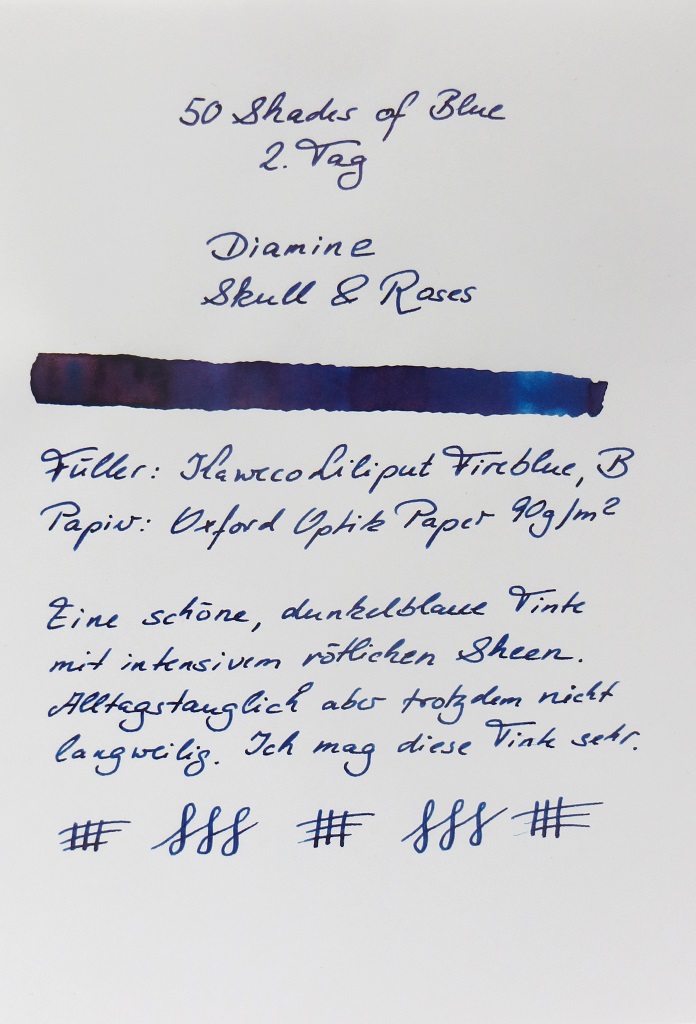 50 Shades of Blue
2. Tag
Diamine
Skull & Roses
Füller: Kaweco Liliput Fireblue, B
Papier: Oxford Optik Paper 90g/m²
Eine schöne, dunkelblaue Tinte
mit intensivem rötlichen Sheen.
Alltagstauglich aber trotzdem nicht
langweilig. Ich mag diese Tinte sehr.